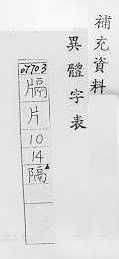 補充資料
異體字表
07703
牑
片
10
14
隔